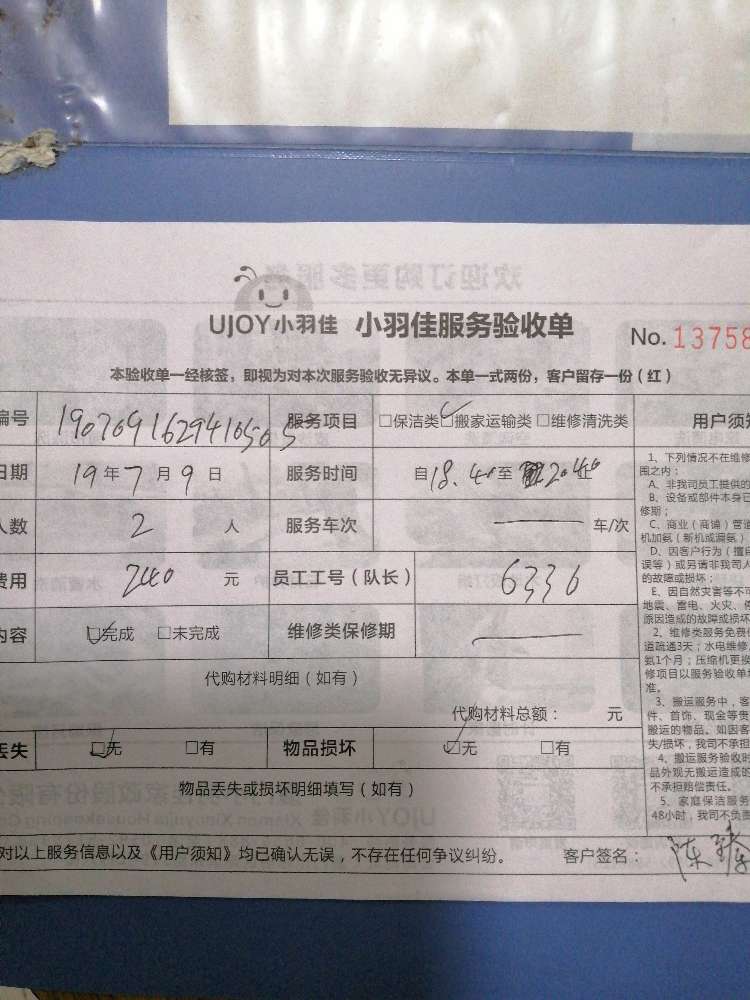 UJOY小羽佳 小羽佳服务验收单 No. 13758
本验收单一经核签，即视为对本次服务验收无异议。本单一式两份，客户留存一份（红）
编号 服务项目 □保洁类 ☑搬家运输类 □维修清洗类 用户须知
日期 19年7月9日 服务时间 自18.40至 20.40
人数 2 人 服务车次 —— 车/次
费用 240 元 员工工号（队长） 6336
内容 ☑完成 □未完成 维修类保修期 ——
代购材料明细（如有）
代购材料总额： 元
丢失 ☑无 □有 物品损坏 ☑无 □有
物品丢失或损坏明细填写（如有）
对以上服务信息以及《用户须知》均已确认无误，不存在任何争议纠纷。 客户签名： 陈
1、下列情况不在维修
围之内：
A、非我司员工提供的
B、设备或部件本身已
修期；
C、商业（商铺）管道
机加氨（新机或漏氨）
D、因客户行为（擅自
误等）或另请非我司人
的故障或损坏；
E、因自然灾害等不可
地震、雷电、火灾、
原因造成的故障或损坏
2、维修类服务免费
道疏通3天；水电维修
氨1个月；压缩机更换
修项目以服务验收单
准。
3、搬运服务中，客
件、首饰、现金等贵
搬运的物品。如因客
失/损坏，我司不承担
4、搬运服务验收时
品外观无搬运造成的
不承担赔偿责任。
5、家庭保洁服务
48小时，我司不负责